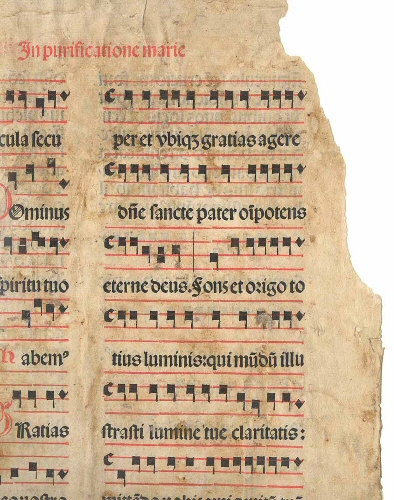 In purificatione marie
cula secu
Ominus
spiritu tuo
habem⁹
Ratias
per et vbiqꝫ gratias agere
dn̄e sancte pater oīpotens
eterne deus. Fons et origo to
tius luminis: qui mūdū illu
strasti lumine tue claritatis: